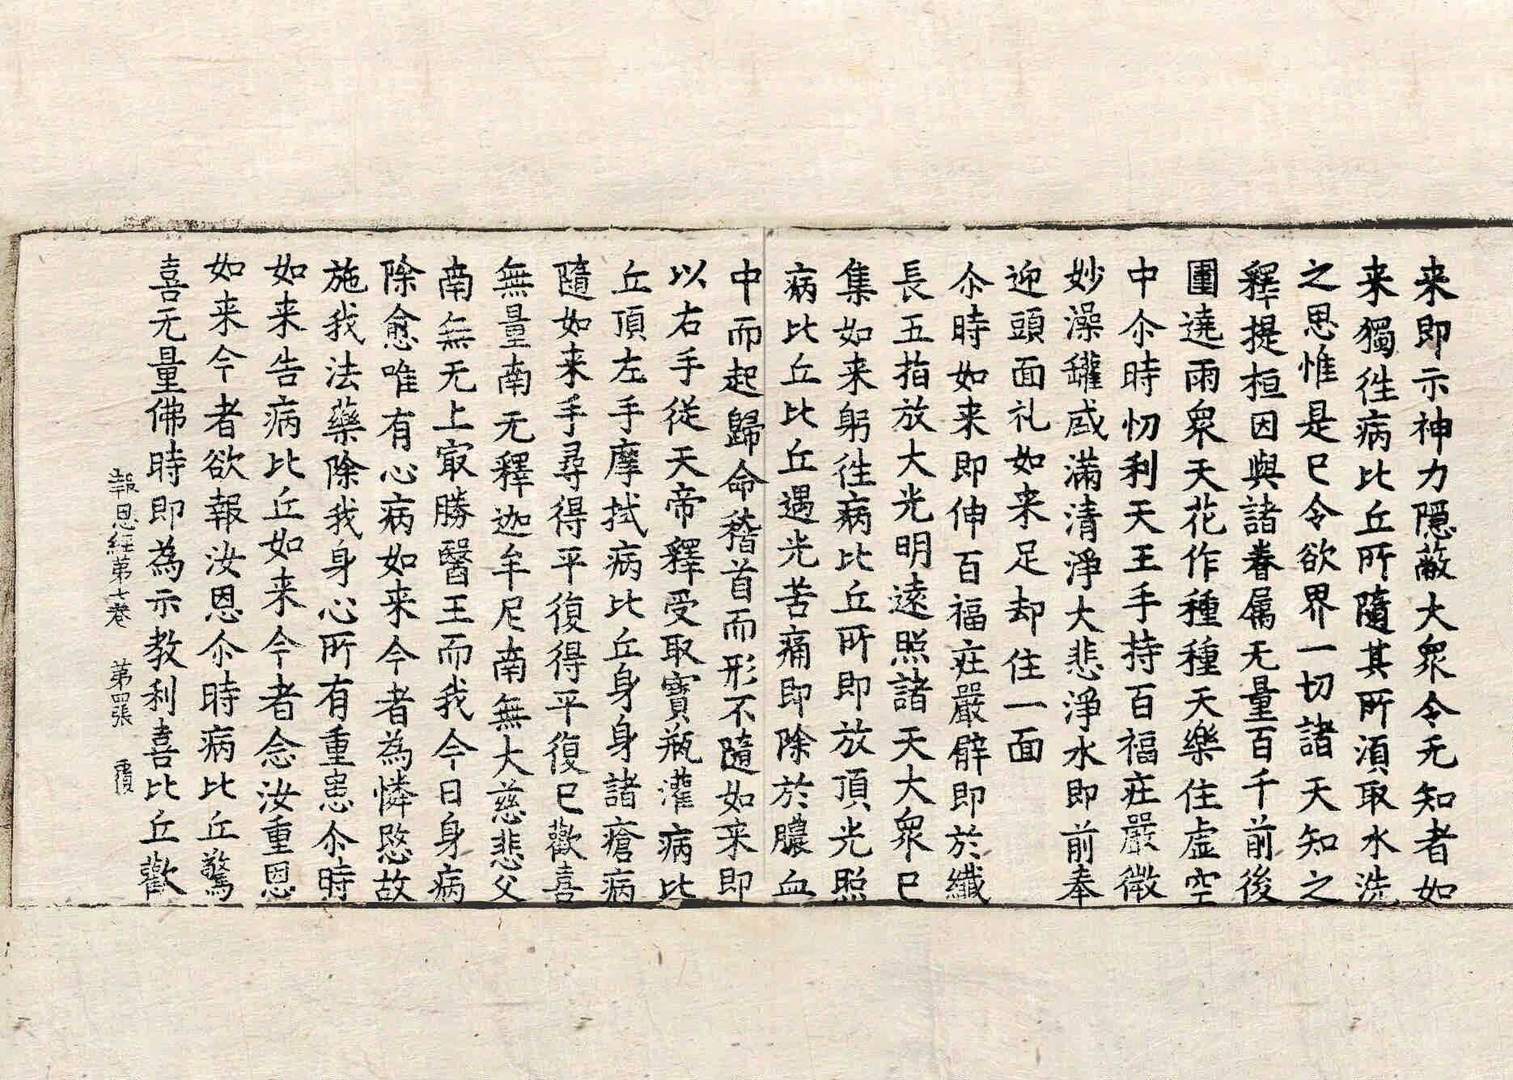 来即示神力隱蔽大衆令无知者如
来獨徃病比丘所隨其所湏取水洗
之思惟是已令欲界一切諸天知之
釋提桓因與諸眷属无量百千前後
圍遶雨衆天花作種種天樂住虚空
中尒時忉利天王手持百福莊嚴微
妙澡罐咸滿清淨大悲淨水即前奉
迎頭面礼如来足却住一面
尒時如来即伸百福莊嚴臂即於纖
長五指放大光明遠照諸天大衆已
集如来躬徃病比丘所即放頂光照
病比丘比丘遇光苦痛即除於膿血
中而起歸命稽首而形不隨如来即
以右手從天帝釋受取寶瓶灌病比
丘頂左手摩拭病比丘身身諸瘡病
隨如来手尋得平復得平復已歡喜
無量南无釋迦牟尼南無大慈悲父
南無无上㝡勝醫王而我今日身病
除愈唯有心病如来今者為憐愍故
施我法藥除我身心所有重恚尒時
如来告病比丘如来今者念汝重恩
如来今者欲報汝恩尒時病比丘驚
喜无量佛時即為示教利喜比丘歡
報恩経第七巻　第四張　覆